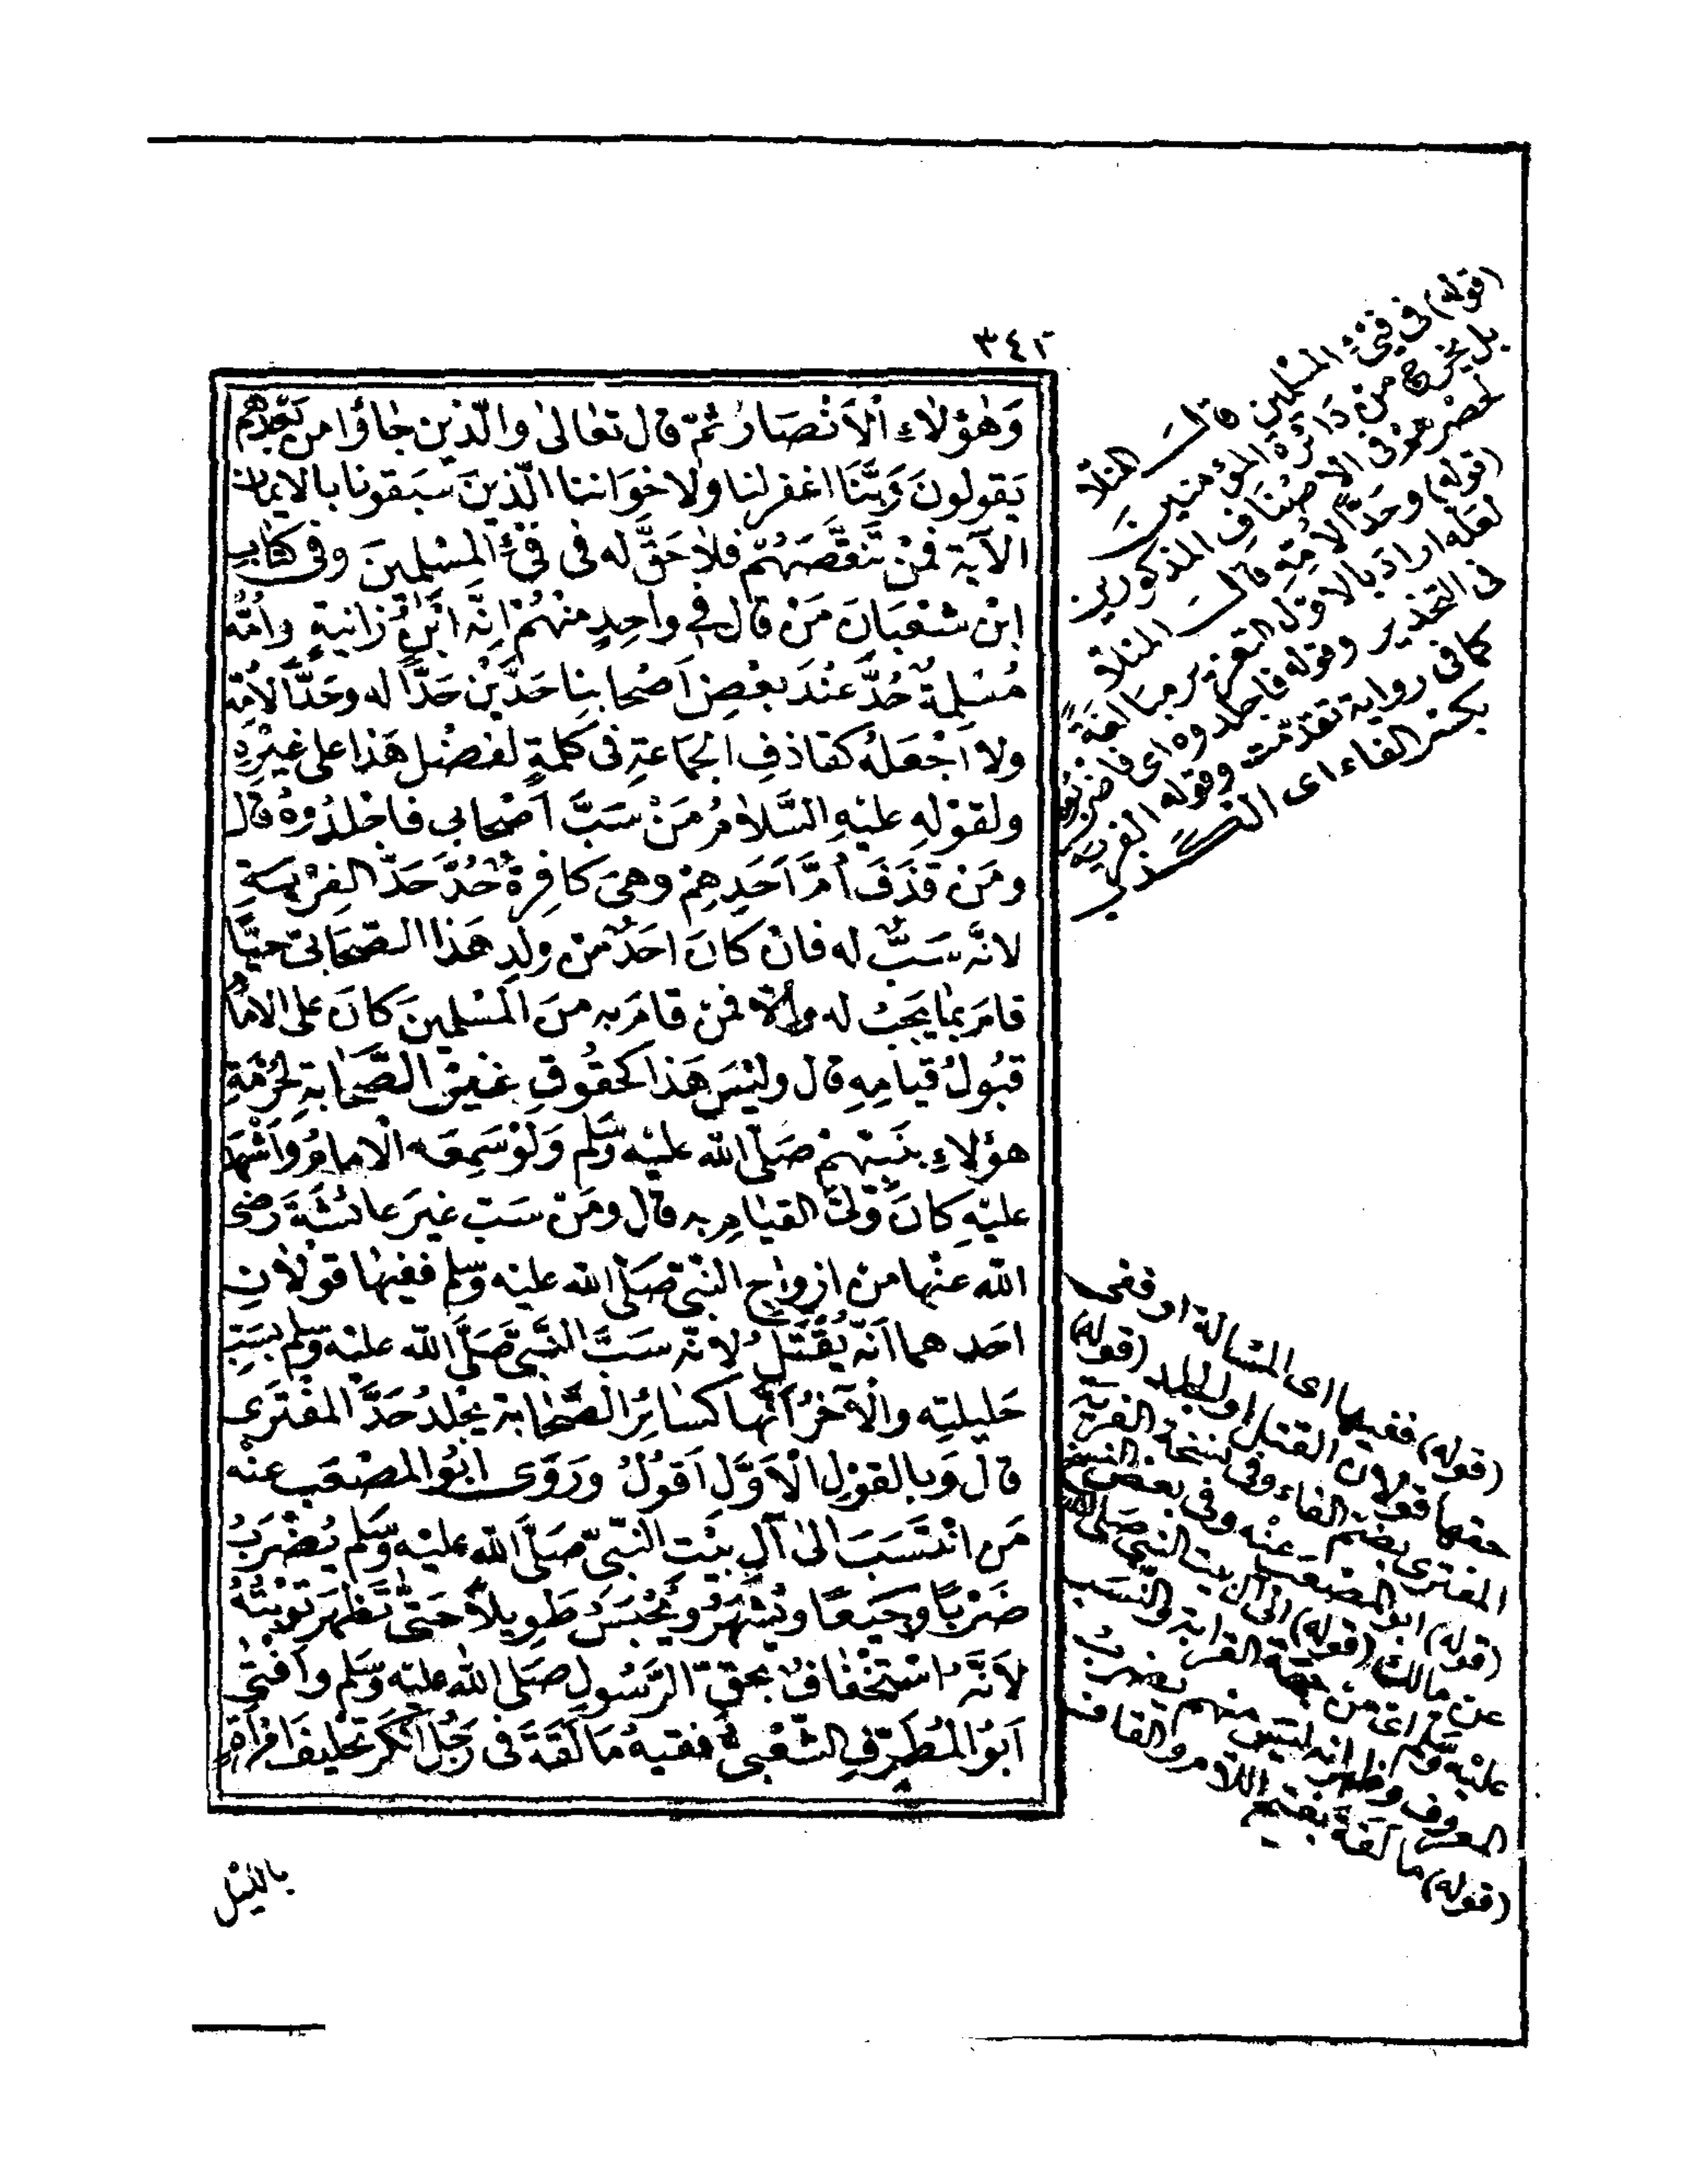 ٣٤٢
وَهٰؤُلَاءِ اْلاَنْصَارُ ثُمَّ قَالَ تَعَالٰى وَالَّذِينَ جَاؤُا مِنْ بَعْدِهِمْ
يَقُولُونَ رَبَّنَا اغْفِرْ لَنَا وَلِاِخْوَانِنَا الَّذِينَ سَبَقُونَا بِالْاِيمَانِ
الْآيَةَ فَمَنْ تَنَقَّصَهُمْ فَلَا حَقَّ لَهُ فِى فَىْءِ الْمُسْلِمِينَ وَفِى كِتَابِ
ابْنِ شَعْبَانَ مَنْ قَالَ فِى وَاحِدٍ مِنْهُمْ اِنَّهُ ابْنُ زَانِيَةٍ وَاُمُّهُ
مُسْلِمَةٌ حُدَّ عِنْدَ بَعْضِ اَصْحَابِنَا حَدَّيْنِ حَدًّا لَهُ وَحَدًّا لِاُمِّهِ
وَلَا اَجْعَلُهُ كَقَاذِفِ الْجَمَاعَةِ فِى كَلِمَةٍ لِفَضْلِ هَذَا عَلَى غَيْرِهِ
وَلِقَوْلِهِ عَلَيْهِ السَّلَامُ مَنْ سَبَّ اَصْحَابِى فَاجْلِدُوهُ قَالَ
وَمَنْ قَذَفَ اُمَّ اَحَدِهِمْ وَهِىَ كَافِرَةٌ حُدَّ حَدَّ الْفِرْيَةِ
لِاَنَّهُ سَبٌّ لَهُ فَاِنْ كَانَ اَحَدٌ مِنْ وَلَدِ هَذَا الصَّحَابِىِّ حَيًّا
قَامَ بِمَا يَجِبُ لَهُ وَاِلَّا فَمَنْ قَامَ بِهِ مِنَ الْمُسْلِمِينَ كَانَ عَلَى الْاِمَامِ
قَبُولُ قِيَامِهِ قَالَ وَلَيْسَ هَذَا كَحُقُوقِ غَيْرِ الصَّحَابَةِ لِحُرْمَةِ
هٰؤُلَاءِ بِنَبِيِّهِمْ صَلَّى اللّٰهُ عَلَيْهِ وَسَلَّمَ وَلَوْ سَمِعَهُ الْاِمَامُ وَاَشْهَدَ
عَلَيْهِ كَانَ وَلِىَّ الْقِيَامِ بِهِ قَالَ وَمَنْ سَبَّ غَيْرَ عَائِشَةَ رَضِىَ
اللّٰهُ عَنْهَا مِنْ اَزْوَاجِ النَّبِىِّ صَلَّى اللّٰهُ عَلَيْهِ وَسَلَّمَ فَفِيهَا قَوْلَانِ
اَحَدُهُمَا اَنَّهُ يُقْتَلُ لِاَنَّهُ سَبَّ النَّبِىَّ صَلَّى اللّٰهُ عَلَيْهِ وَسَلَّمَ بِسَبِّ
حَلِيلَتِهِ وَالْآخَرُ اَنَّهَا كَسَائِرِ الصَّحَابَةِ يُجْلَدُ حَدَّ الْمُفْتَرِى
قَالَ وَبِالْقَوْلِ الْاَوَّلِ اَقُولُ وَرَوَى اَبُو الْمُصْعَبِ عَنْهُ
مَنِ انْتَسَبَ اِلَى آلِ بَيْتِ النَّبِىِّ صَلَّى اللّٰهُ عَلَيْهِ وَسَلَّمَ يُضْرَبُ
ضَرْبًا وَجِيعًا وَيُشْهَرُ وَيُحْبَسُ طَوِيلًا حَتَّى تَظْهَرَ تَوْبَتُهُ
لِاَنَّهُ اسْتِخْفَافٌ بِحَقِّ الرَّسُولِ صَلَّى اللّٰهُ عَلَيْهِ وَسَلَّمَ وَاَفْتَى
اَبُو الْمُطَرِّفِ الشَّعْبِىُّ فَقِيهُ مَالَقَةَ فِى رَجُلٍ اَنْكَرَ تَحْلِيفَ امْرَاَةٍ
بالليل
(قوله) فى فىء المسلمين قال المنلا
بل يخرج من دائرة المؤمنين
لحصرهم فى الاصناف المذكورين
(قوله) وحدا لامه قال المنلا
لعله اراد بالاول التعزير مبالغة
فى التحذير وقوله فاجلدوه اى فاضربوه
كما فى رواية تقدمت وقوله الفرية
بكسر الفاء اى الكذب
(قوله) ففيها اى المسألة او ففى
حقها قولان القتل او الجلد (قوله)
المفترى بضم الفاء وفى نسخة الفرية
(قوله) ابو المصعب عنه وفى بعض النسخ
عن مالك (قوله) الى آل بيت النبى صلى الله
عليه وسلم اى من جهة القرابة والنسب
المعروف وظهر انه ليس منهم يضرب
(قوله) مالقة بفتح اللام والقاف